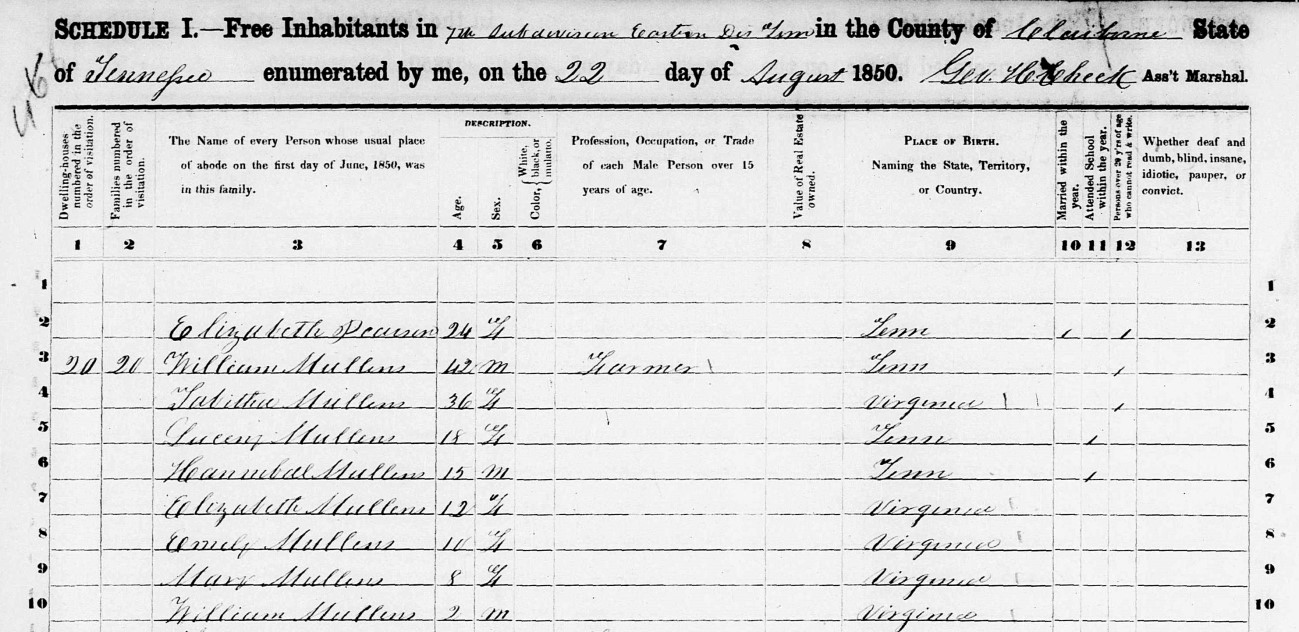 SCHEDULE I.—Free Inhabitants in 7th Subdivision Eastern Dis Tenn in the County of Claiborne State
of Tennessee enumerated by me, on the 22 day of August 1850. Geo. H Cheek Ass't Marshal.
Dwelling-houses numbered in the order of visitation.
Families numbered in the order of visitation.
The Name of every Person whose usual place of abode on the first day of June, 1850, was in this family.
DESCRIPTION.
Age.
Sex.
Color, { White, black, or mulatto.
Profession, Occupation, or Trade of each Male Person over 15 years of age.
Value of Real Estate owned.
PLACE OF BIRTH. Naming the State, Territory, or Country.
Married within the year.
Attended School within the year.
Persons over 20 y'rs of age who cannot read & write.
Whether deaf and dumb, blind, insane, idiotic, pauper, or convict.
1 2 3 4 5 6 7 8 9 10 11 12 13
1 1
2 Elizabeth Pearson 24 F Tenn / / 2
3 20 20 William Mullens 42 m Farmer Tenn / 3
4 Tabitha Mullens 36 F Virginia / 4
5 Mullens 18 F Tenn / 5
6 Hannibal Mullens 15 m Tenn / 6
7 Elizabeth Mullens 12 F Virginia 7
8 Emely Mullens 10 F Virginia 8
9 Mary Mullens 8 F Virginia 9
10 William Mullens 2 m Virginia 10